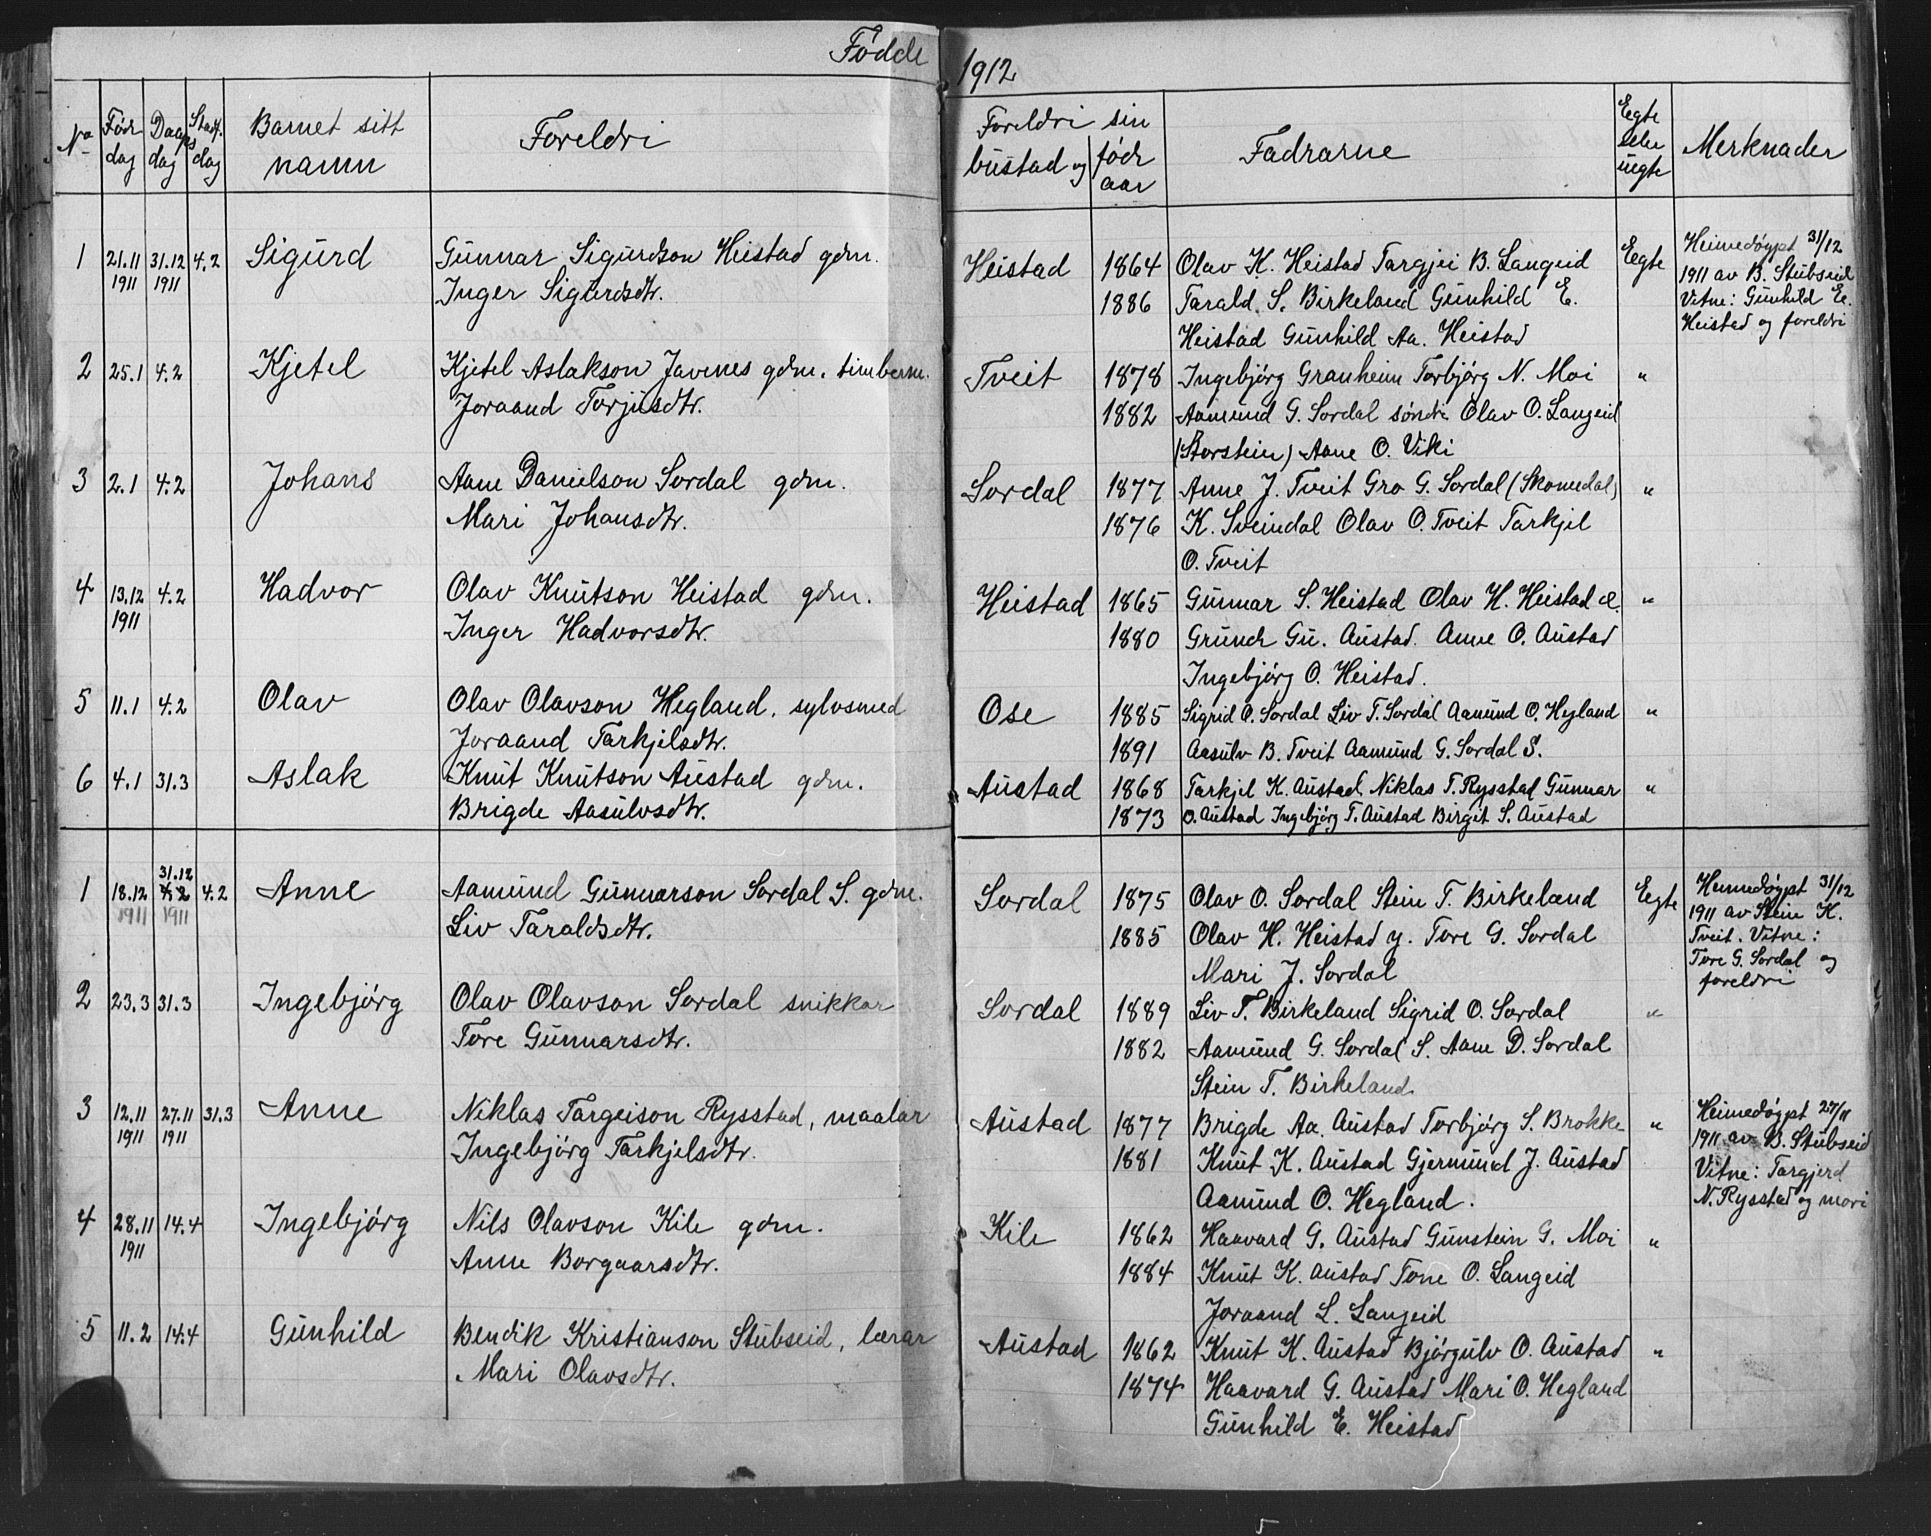 Fødde 1912
No Fødr dag Daaps dag Stadf. dag Barnet sitt namn Foreldri Foreldri sin bustad og fødr aar Fadrarne Egte eller uegte Merknader
1 21.11 1911 31.12 1911 4.2 Sigurd Gunnar Sigurdson Heistad gdm. Heistad 1864 Olav K. Heistad Targjei B. Langeid Egte Heimedøypt 31/12
Inger Sigurdsdtr. 1886 Tarald S. Birkeland Gunhild E. 1911 av B. Stubseid
Heistad Gunhild Aa. Heistad Vitne: Gunhild E.
Heistad og foreldri
2 25.1 4.2 Kjetel Kjetel Aslakson Javnes gdm. timberm. Tveit 1878 Ingebjørg Granheim Torbjørg N. Moi "
Joraand Torjusdtr. 1882 Aamund G. Sordal søndre Olav O. Langeid
(Storstein) Aane O. Viki
3 2.1 4.2 Johans Aane Danielson Sordal gdm. Sordal 1877 Anne J. Tveit Gro G. Sordal (Skomedal) "
Mari Johansdtr. 1876 K. Sveindal Olav O. Tveit Tarkjel
O. Tveit
4 13.12 1911 4.2 Hadvor Olav Knutson Heistad gdm. Heistad 1865 Gunnar S. Heistad Olav H. Heistad æ. "
Inger Hadvorsdtr. 1880 Grunde Gu. Austad. Anne O. Austad
Ingebjørg O. Heistad.
5 11.1 4.2 Olav Olav Olavson Hegland. sylvsmed Ose 1885 Sigrid O. Sordal Liv T. Sordal Aamund O. Hegland "
Joraand Tarkjelsdtr. 1891 Aasulv B. Tveit Aamund G. Sordal S.
6 4.1 31.3 Aslak Knut Knutson Austad gdm. Austad 1868 Tarkjel K. Austad. Niklas T. Rysstad Gunnar "
Brigde Aasulvsdtr. 1873 O. Austad Ingebjørg T. Austad Birgit S. Austad
1 18.12 1911 31.12 1911 4.2 Anne Aamund Gunnarson Sordal S. gdm. Sordal 1875 Olav O. Sordal Stein T. Birkeland Egte Heimedøypt 31/12
Liv Taraldsdtr. 1885 Olav H. Heistad y. Tore G. Sordal 1911 av Stein K.
Mari J. Sordal Tveit. Vitne:
Tore G. Sordal og
foreldri
2 23.3 31.3 Ingebjørg Olav Olavson Sordal snikkar Sordal 1889 Liv T. Birkeland Sigrid O. Sordal "
Tore Gunnarsdtr. 1882 Aamund G. Sordal S. Aane D. Sordal
Stein T. Birkeland
3 12.11 1911 27.11 1911 31.3 Anne Niklas Targeison Rysstad, maalar Austad 1877 Brigde Aa. Austad Torbjørg S. Brokke " Heimedøypt 27/11
Ingebjørg Tarkjelsdtr. 1881 Knut K. Austad Gjermund J. Austad 1911 av B. Stubseid
Aamund O. Hegland. Vitne: Targjerd
N. Rysstad og mori
4 28.11 1911 14.4 Ingebjørg Nils Olavson Kile gdm. Kile 1862 Haavard G. Austad Gunstein G. Moi "
Anne Borgaarsdtr. 1884 Knut K. Austad Tone O. Langeid
Joraand L. Langeid
5 11.2 14.4 Gunhild Bendik Kristianson Stubseid, lærar Austad 1862 Knut K. Austad Bjørgulv O. Austad "
Mari Olavsdtr. 1874 Haavard G. Austad Mari O. Hegland
Gunhild E. Heistad
5